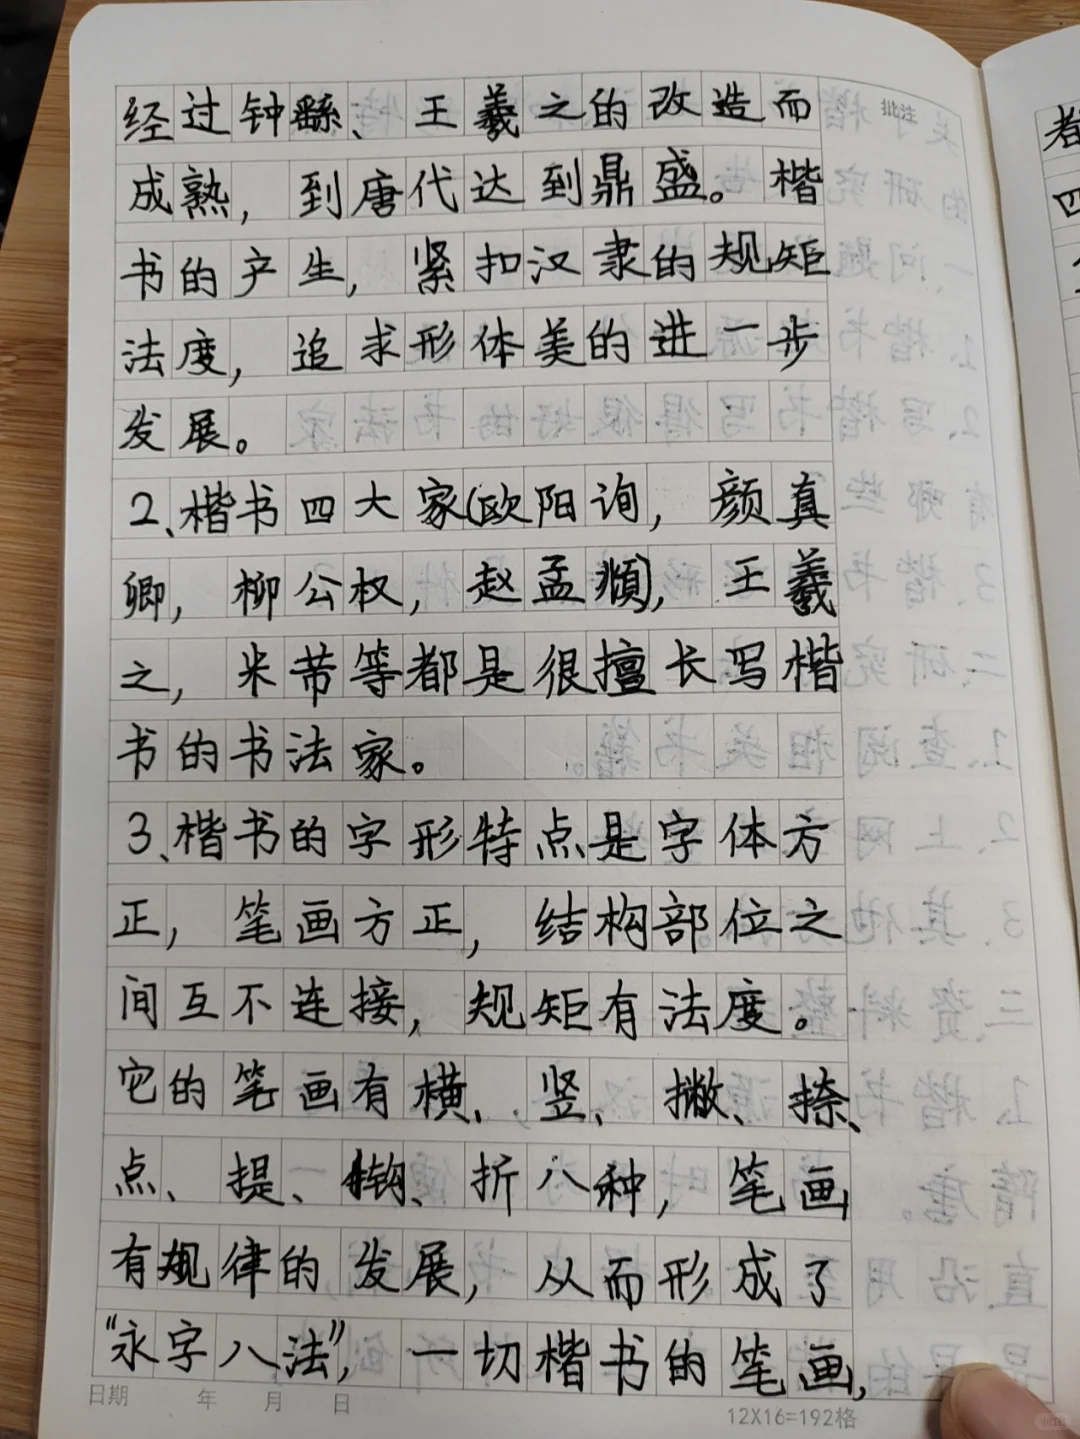 经过钟繇、王羲之的改造而
成熟，到唐代达到鼎盛。楷
书的产生，紧扣汉隶的规矩
法度，追求形体美的进一步
发展。
2、楷书四大家(欧阳询，颜真
卿，柳公权，赵孟頫)，王羲
之，米芾等都是很擅长写楷
书的书法家。
3、楷书的字形特点是字体方
正，笔画方正，结构部位之
间互不连接，规矩有法度。
它的笔画有横、竖、撇、捺、
点、提、钩、折八种，笔画
有规律的发展，从而形成了
“永字八法”，一切楷书的笔画，
批注
日期 年 月 日
12X16=192格
着
四